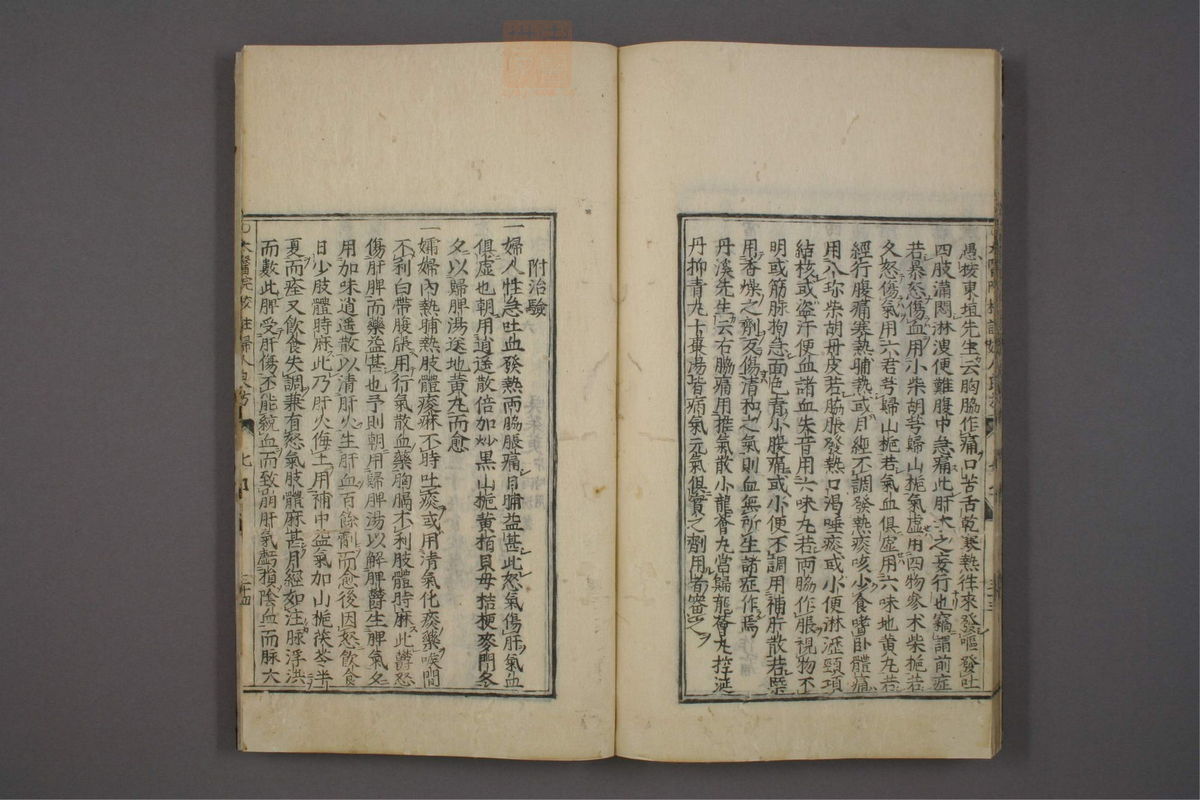 愚按東垣先生云胸脇作痛口苦舌乾寒熱往來發嘔發吐
四肢滿悶淋溲便難腹中急痛此肝木之妄行也竊謂前症
若暴怒傷血用小柴胡芎歸山梔氣虛用四物參朮柴梔若
久怒傷氣用六君芎歸山梔若氣血俱虛用六味地黃丸若
經行腹痛寒熱晡熱或月經不調發熱痰咳少食嗜卧體痛
用八珍柴胡丹皮若脇脹發熱口渴唾痰或小便淋瀝頸項
結核或盜汗便血諸血失音用六味丸若兩脇作脹視物不
明或筋脉拘急面色青小腹痛或小便不調用補肝散若槩
用香燥之劑反傷清和之氣則血無所生諸症作焉
丹溪先生云右脇痛用推氣散小龍薈丸當歸龍薈丸控涎
丹抑青丸十棗湯皆病氣元氣俱實之劑用者審之
附治驗
一婦人性急吐血發熱兩脇脹痛日晡益甚此怒氣傷肝氣血
俱虛也朝用逍遙散倍加炒黑山梔黃栢貝母桔梗麥門冬
夕以歸脾湯送地黃丸而愈
一孀婦內熱晡熱肢體痠麻不時吐痰或用清氣化痰藥喉間
不利白帶腹脹用行氣散血藥胸膈不利肢體時麻此鬱怒
傷肝脾而藥益甚也予則朝用歸脾湯以解脾鬱生脾氣夕
用加味逍遙散以清肝火生肝血百餘劑而愈後因怒飲食
日少肢體時麻此乃肝火侮土用補中益氣加山梔茯苓半
夏而痊又飲食失調兼有怒氣肢體麻甚月經如注脉浮洪
而數此脾受肝傷不能統血而致崩肝氣虧損陰血而脉大
三十四